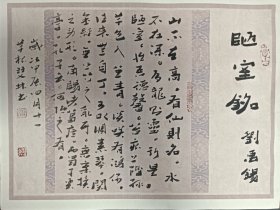 陋室銘
劉禹錫
山不在高有仙則名水
不在深有龍則靈斯是
陋室惟吾德馨苔痕上階綠
草色入簾青談笑有鴻儒
往來無白丁可以調素琴閱
金經無絲竹之亂耳無案牘
之勞形南陽諸葛廬西蜀子雲
亭孔子云何陋之有
歲次甲辰四月十一